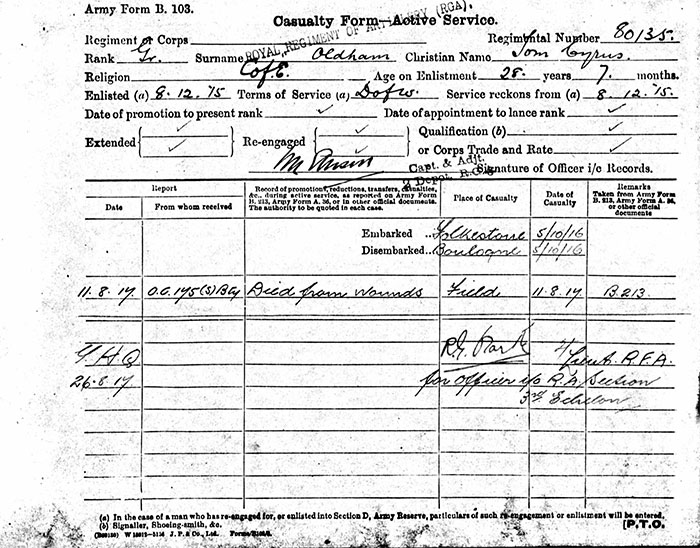 Army Form B. 103.
Casualty Form—Active Service.
ROYAL REGIMENT OF ARTILLERY (RGA).
Regiment or Corps Regimental Number 80135.
Rank Gr. Surname Oldham Christian Name Tom Cyrus.
Religion C of E. Age on Enlistment 28 years 7 months.
Enlisted (a) 8.12.15 Terms of Service (a) D of W. Service reckons from (a) 8.12.15.
Date of promotion to present rank Date of appointment to lance rank
Extended Re-engaged Qualification (b)
or Corps Trade and Rate
Capt. & Adjt.
Depot. R.G.A.
Signature of Officer i/c Records.
Report
Date From whom received
Record of promotions, reductions, transfers, casualties,
&c., during active service, as reported on Army Form
B. 213, Army Form A. 36, or in other official documents.
The authority to be quoted in each case.
Place of Casualty
Date of
Casualty
Remarks
Taken from Army Form
B. 213, Army Form A. 36,
or other official
documents
Embarked .. Folkestone 5/10/16
Disembarked.. Boulogne 5/10/16
11.8.17. O.C. 175(S)Bty Died from wounds Field 11.8.17 B.213.
G.H.Q
26.8.17
Lieut. R.F.A.
for Officer i/c R.A. Section
3rd. Echelon
(a) In the case of a man who has re-engaged for, or enlisted into Section D, Army Reserve, particulars of such re-engagement or enlistment will be entered.
(b) Signaller, Shoeing-smith, &c.
J. P. & Co., Ltd.
[P.T.O.